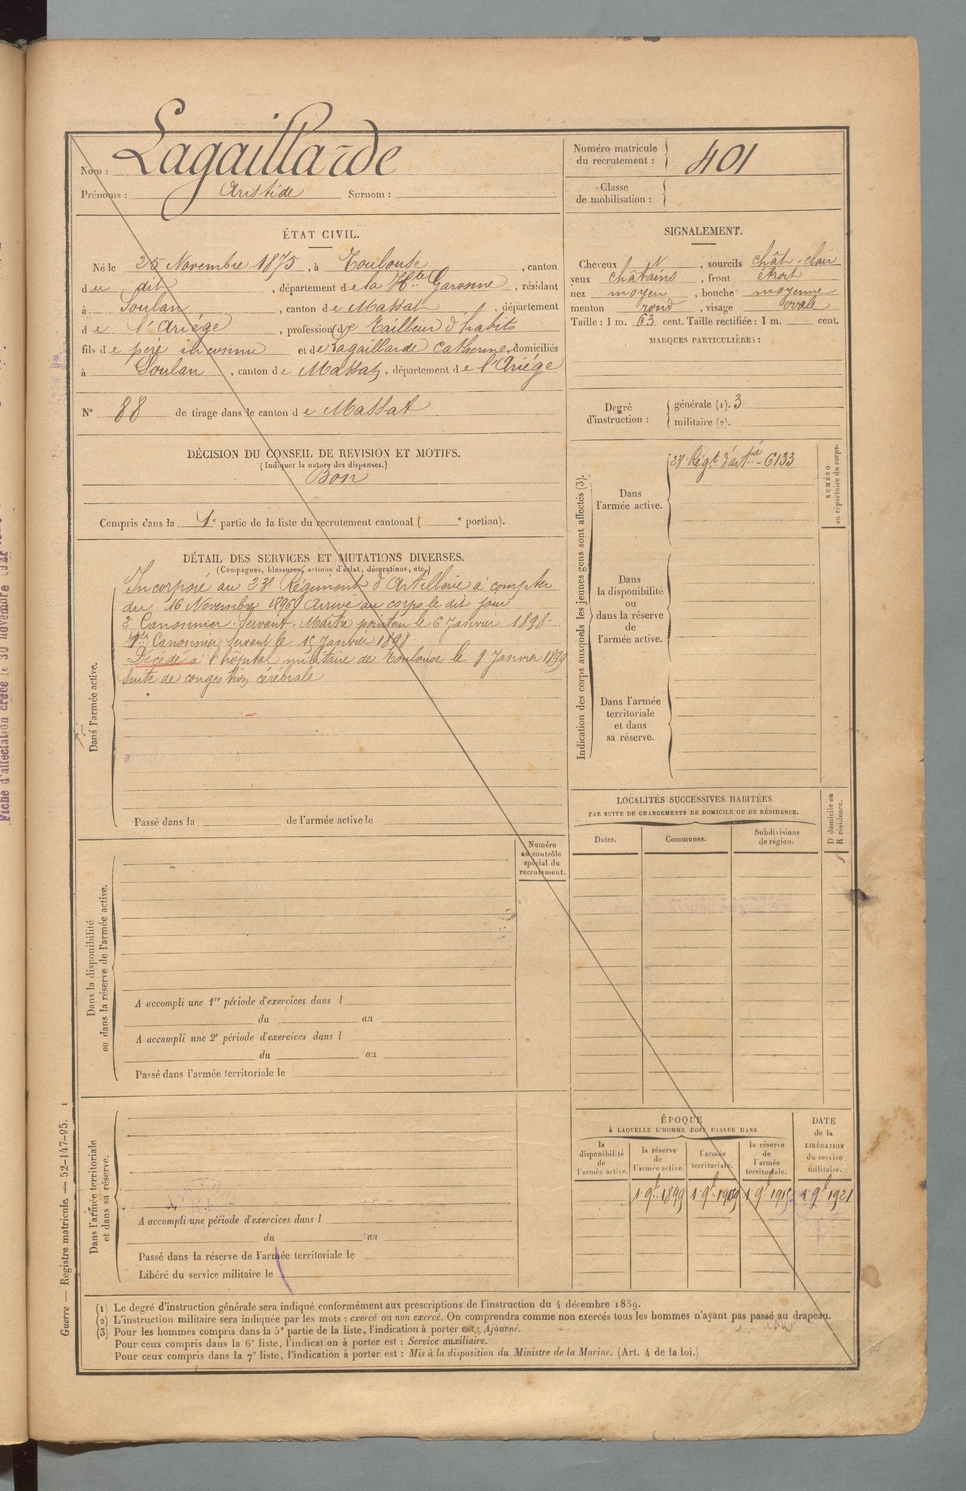 Nom : Lagaillarde
Prénoms : Aristide Surnom :
Numéro matricule du recrutement : 401
Classe de mobilisation :
ÉTAT CIVIL.
Né le 25 Novembre 1875, à Toulouse, canton
du dit, département de la Hte Garonne, résidant
à Soulan, canton de Massat, département
de l'Ariége, profession de Tailleur d'habits
fils de père inconnu et de Lagaillarde Catherine, domiciliés
à Soulan, canton de Massat, département de l'Ariége
N° 88 de tirage dans le canton de Massat
SIGNALEMENT.
Cheveux N, sourcils chât. clair
yeux chatains, front étroit
nez moyen, bouche moyenne
menton rond, visage ovale
Taille : 1 m. 63 cent. Taille rectifiée : 1 m. cent.
MARQUES PARTICULIÈRES :
Degré d'instruction : générale (1). 3
militaire (2).
DÉCISION DU CONSEIL DE REVISION ET MOTIFS.
(Indiquer la nature des dispenses.)
Bon
Compris dans la 1e partie de la liste du recrutement cantonal ( e portion).
DÉTAIL DES SERVICES ET MUTATIONS DIVERSES.
(Campagnes, blessures, actions d'éclat, décorations, etc.)
Dans l'armée active.
Incorporé au 23e Régiment d'Artillerie à compter
du 16 Novembre 1896 Arrivé au corps le dit jour
2e Canonnier Servant. Maitre pointeur le 6 Janvier 1898
1er Canonnier Servant le 15 Janvier 1898
Décédé à l'hôpital militaire de Toulouse le 9 Janvier 1899
suite de congestion cérébrale
Passé dans la de l'armée active le
Indication des corps auxquels les jeunes gens sont affectés (3).
Dans l'armée active.
23e Régt d'artie - 6133
NUMÉRO au répertoire du corps.
Dans la disponibilité ou dans la réserve de l'armée active.
Dans l'armée territoriale et dans sa réserve.
LOCALITÉS SUCCESSIVES HABITÉES
PAR SUITE DE CHANGEMENTS DE DOMICILE OU DE RÉSIDENCE.
Dates. Communes. Subdivisions de région.
D domicile ou R résidence.
Dans la disponibilité ou dans la réserve de l'armée active.
Numéro au contrôle spécial du recrutement.
A accompli une 1re période d'exercices dans l
du au
A accompli une 2e période d'exercices dans l
du au
Passé dans l'armée territoriale le
Dans l'armée territoriale et dans sa réserve.
A accompli une période d'exercices dans l
du au
Passé dans la réserve de l'armée territoriale le
Libéré du service militaire le
ÉPOQUE
À LAQUELLE L'HOMME DOIT PASSER DANS
la disponibilité de l'armée active.
la réserve de l'armée active.
l'armée territoriale.
la réserve de l'armée territoriale.
DATE de la LIBÉRATION du service militaire.
1 9bre 1899 1 9bre 1909 1 9bre 1915 1 9bre 1921
(1) Le degré d'instruction générale sera indiqué conformément aux prescriptions de l'instruction du 4 décembre 1889.
(2) L'instruction militaire sera indiquée par les mots : exercé ou non exercé. On comprendra comme non exercés tous les hommes n'ayant pas passé au drapeau.
(3) Pour les hommes compris dans la 5e partie de la liste, l'indication à porter est : Ajourné.
Pour ceux compris dans la 6e liste, l'indication à porter est : Service auxiliaire.
Pour ceux compris dans la 7e liste, l'indication à porter est : Mis à la disposition du Ministre de la Marine. (Art. 4 de la loi.)
Guerre — Registre matricule. — 52-147-95. 1
Fiche d'affectation créée le 30 novembre